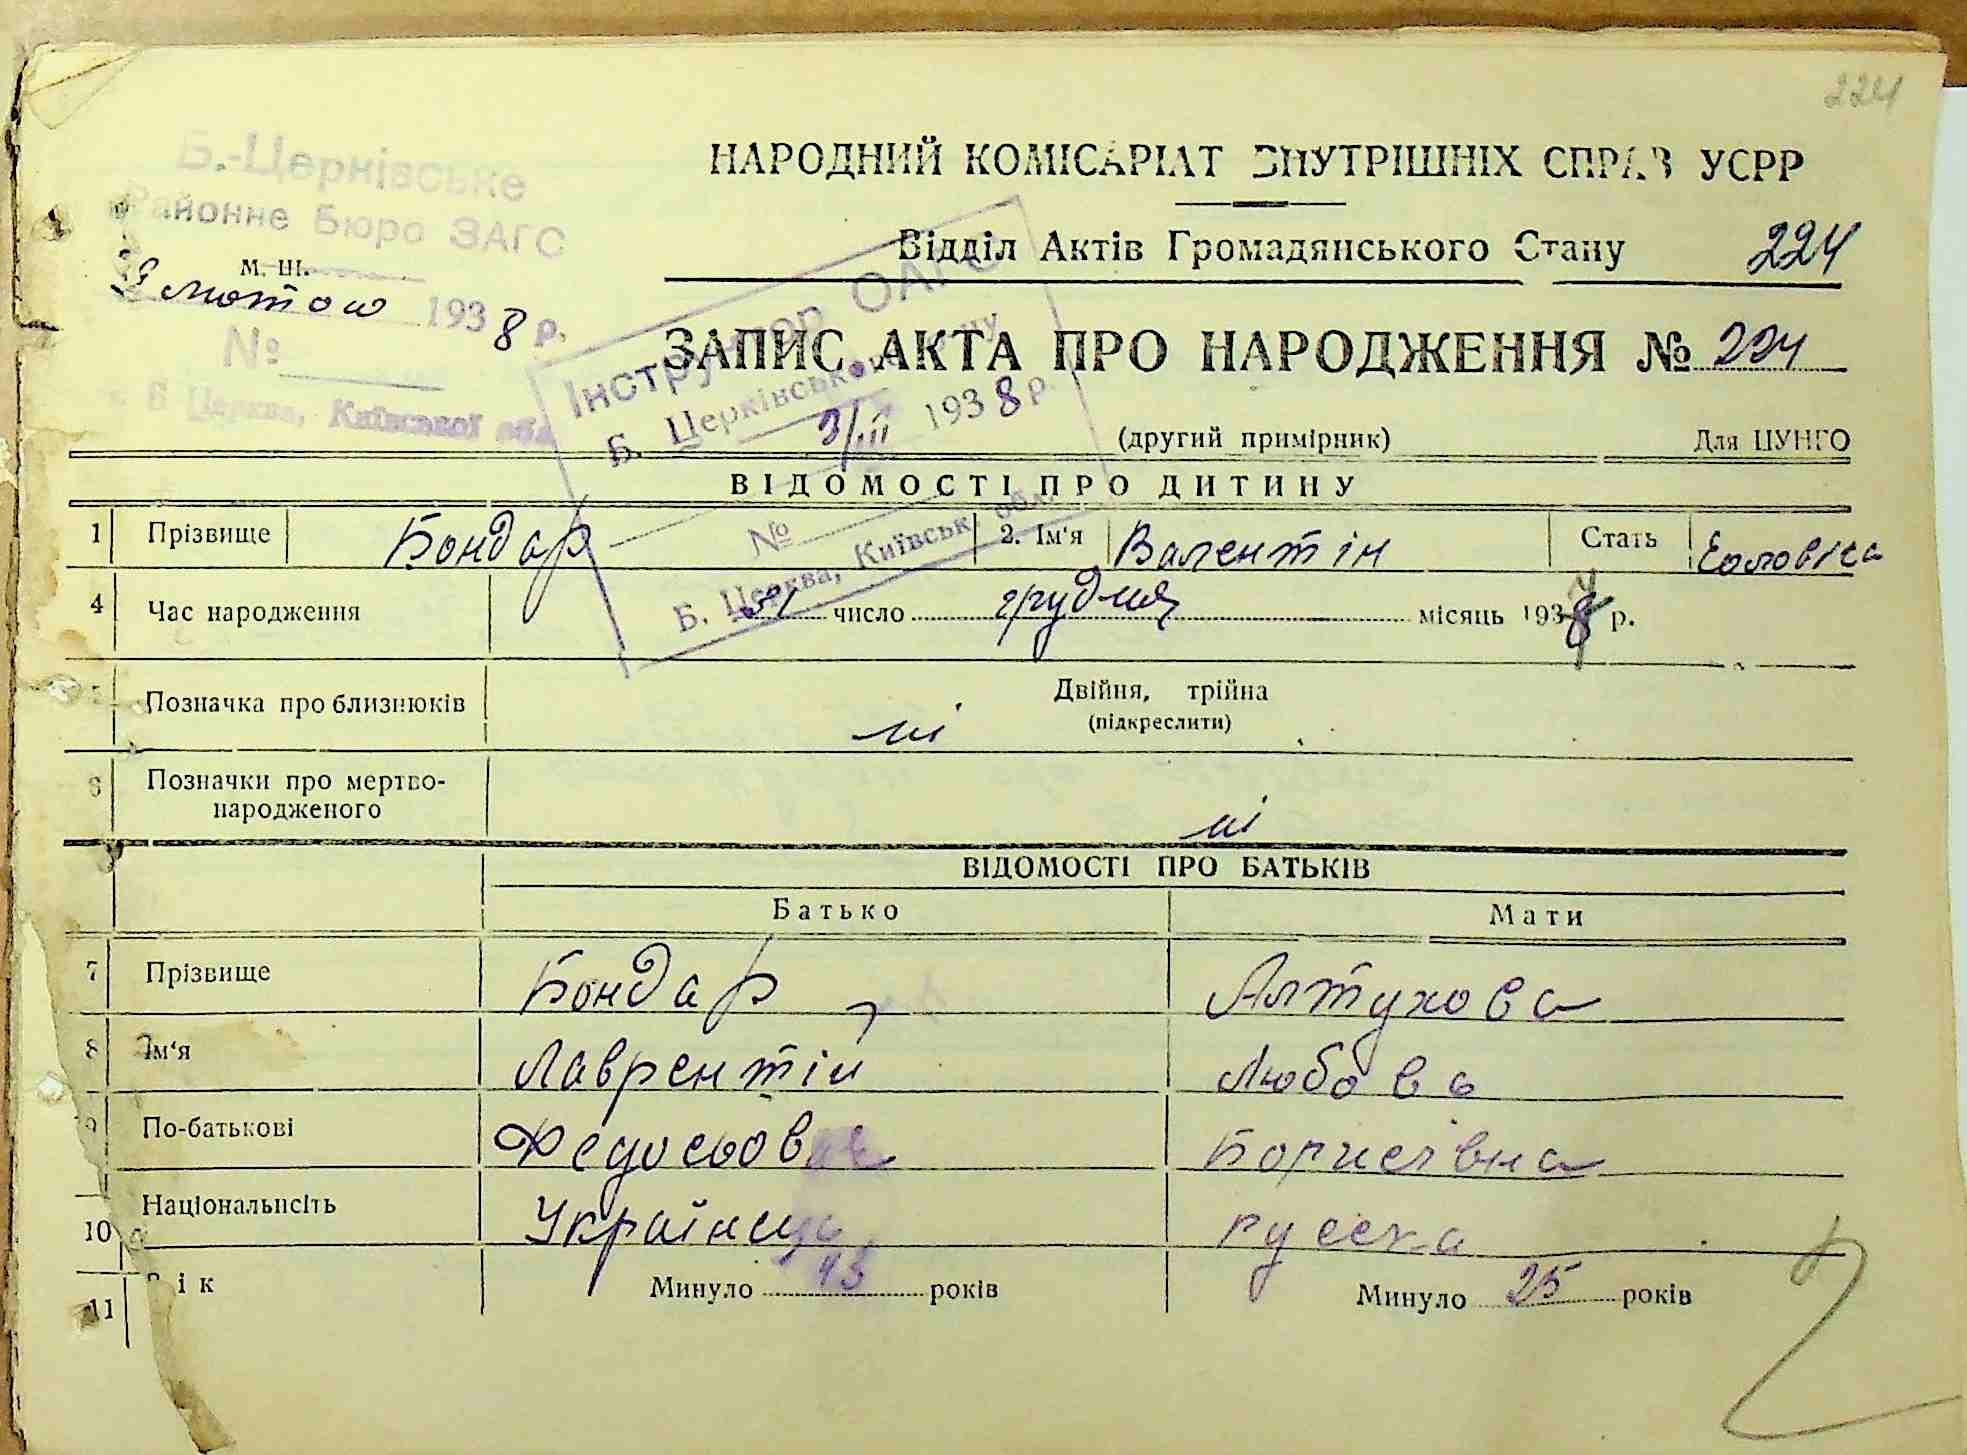 224
Б.-Церківське
Районне Бюро ЗАГС
м. ш.
лютого 1938 р.
№
Б Церква, Київської обл
НАРОДНИЙ КОМІСАРІАТ ВНУТРІШНІХ СПРАВ УСРР
Відділ Актів Громадянського Стану 224
ЗАПИС АКТА ПРО НАРОДЖЕННЯ № 224
Інструктор ОАГС
Б. Церківського
3/III 1938 р.
№
Б. Церква, Київськ. обл.
(другий примірник) Для ЦУНГО
ВІДОМОСТІ ПРО ДИТИНУ
1 Прізвище Бондар 2. Ім'я Валентін Стать Чоловіча
4 Час народження 31 число грудня місяць 1937 р.
5 Позначка про близнюків Двійня, трійна
(підкреслити)
ні
6 Позначки про мертво-
народженого ні
ВІДОМОСТІ ПРО БАТЬКІВ
Батько Мати
7 Прізвище Бондар Алтухова
8 Ім'я Лаврентій Любовь
9 По-батькові Борисівна
10 Національність Українець русска
11 Вік Минуло років Минуло 25 років